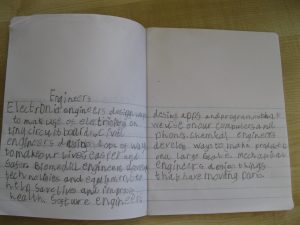 Engineers
Electronic engineers design ways
to make use of electricity on
tiny circuit boards. Civil
engineers design loads of ways
to make our lives easier and
Safer. Biomedical engineers develop
technologies and equipment to
help Save lives and improve
health. Software engineers
design apps and programs that
we use on our computers and
phones. chemical engineers
develop ways to make products
on a large Scale. mechanical
engineers design things
that have moving parts.